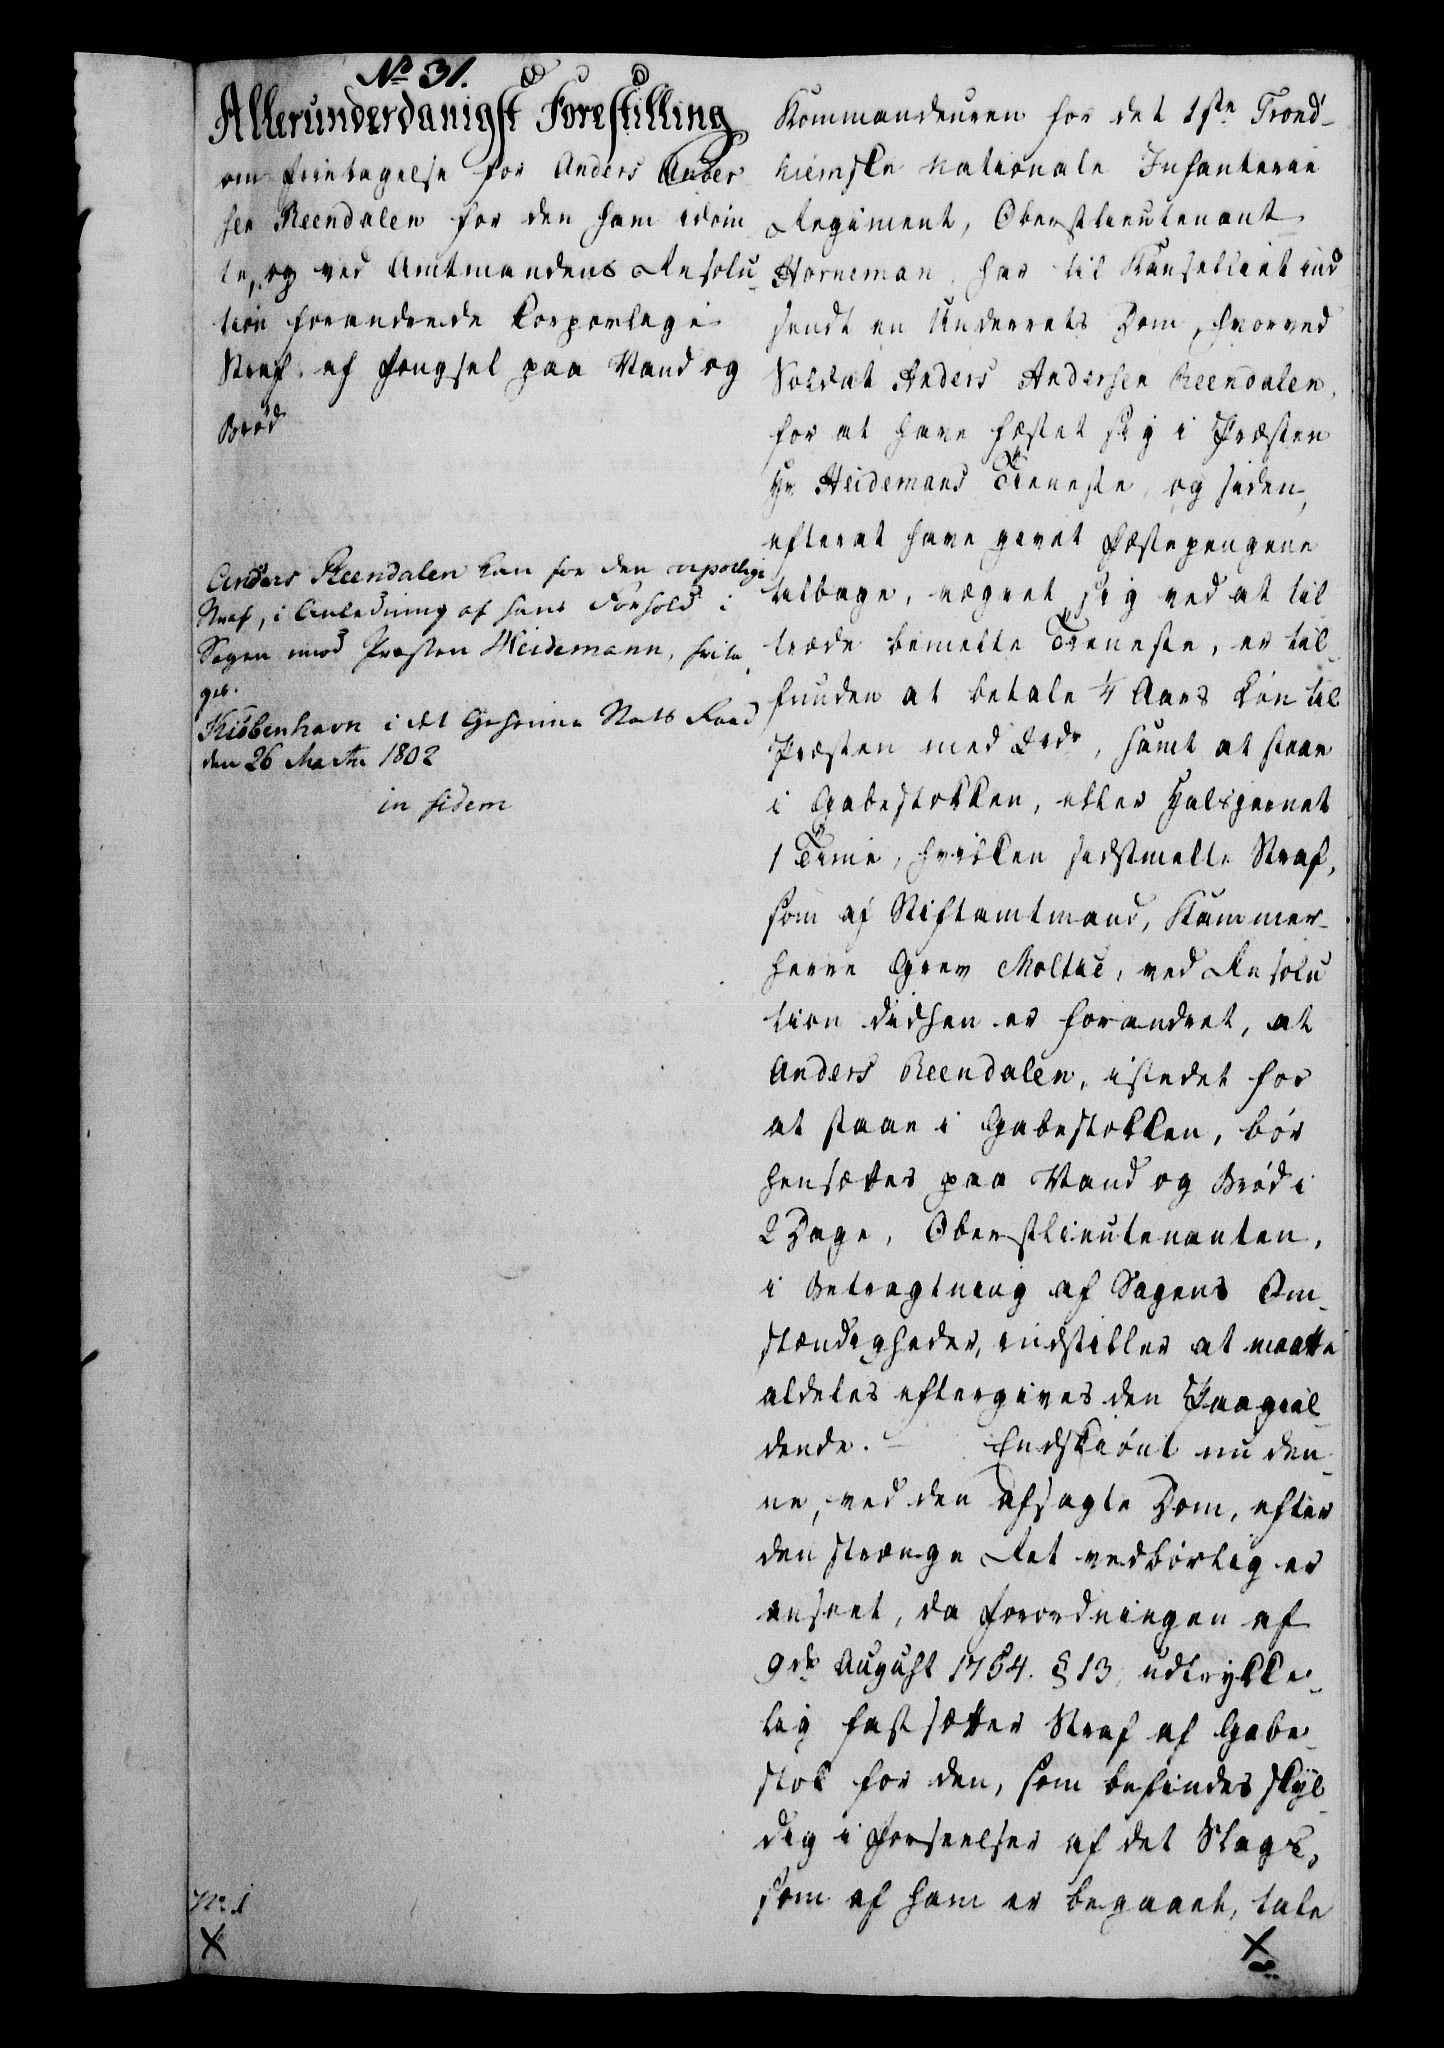 No 31.
Allerunderdanigst Forestilling
om Fritagelse for Anders Ander
sen Reendalen for den ham idøm
te, og ved Amtmandens Resolu
tion forandrede Korporlige
Straf af Fængsel paa Vand og
Brød
Anders Reendalen kan for den
Straf, i Anledning af hans Forhold i
Sagen imod Præsten Heidemann, frita
ges.
Kiøbenhavn i det Geheime Stats Raad
den 26 Martii 1802
in fidem
No 1
X
Kommandeuren for det 1ste Trond-
hiemske nationale Infanterie
Regiment, Oberstlieutenant
Horneman, har til Kanselliet ind
sendt en Underrets Dom, hvorved
Soldat Anders Andersen Reendalen,
for at have fæstet sig i Præsten
Hr Heidemans Tieneste, og siden,
efterat have givet Fæstepengene
tilbage, vægret sig ved at til
træde bemelte Tieneste, er til-
funden at betale 1/4 Aars Løn til
Præsten med 2rdr, samt at staae
i Gabestokken, eller Halsjernet
1 Time, hvilken sidstmelte Straf,
som af Stiftamtmand, Kammer-
herre Grev Moltke, ved Resolu
tion didhen er forandret, at
Anders Reendalen, istedet for
at staae i Gabestokken, bør
hensættes paa Vand og Brød i
2 Dage, Oberstlieutenanten,
i Betragtning af Sagens Om-
stændigheder, indstiller at maatte
aldeles eftergives den Paagiel-
dende. – Endskiønt nu den-
ne, ved den afsagte Dom, efter
den strænge Ret vedbørlig er
anseet, da Forordningen af
9de August 1754. § 13, udtrykke-
lig fastsætter Straf af Gabe-
stok for den, som befindes skyl-
dig i Forseelser af det Slags,
som af ham er begaaet, tale
X